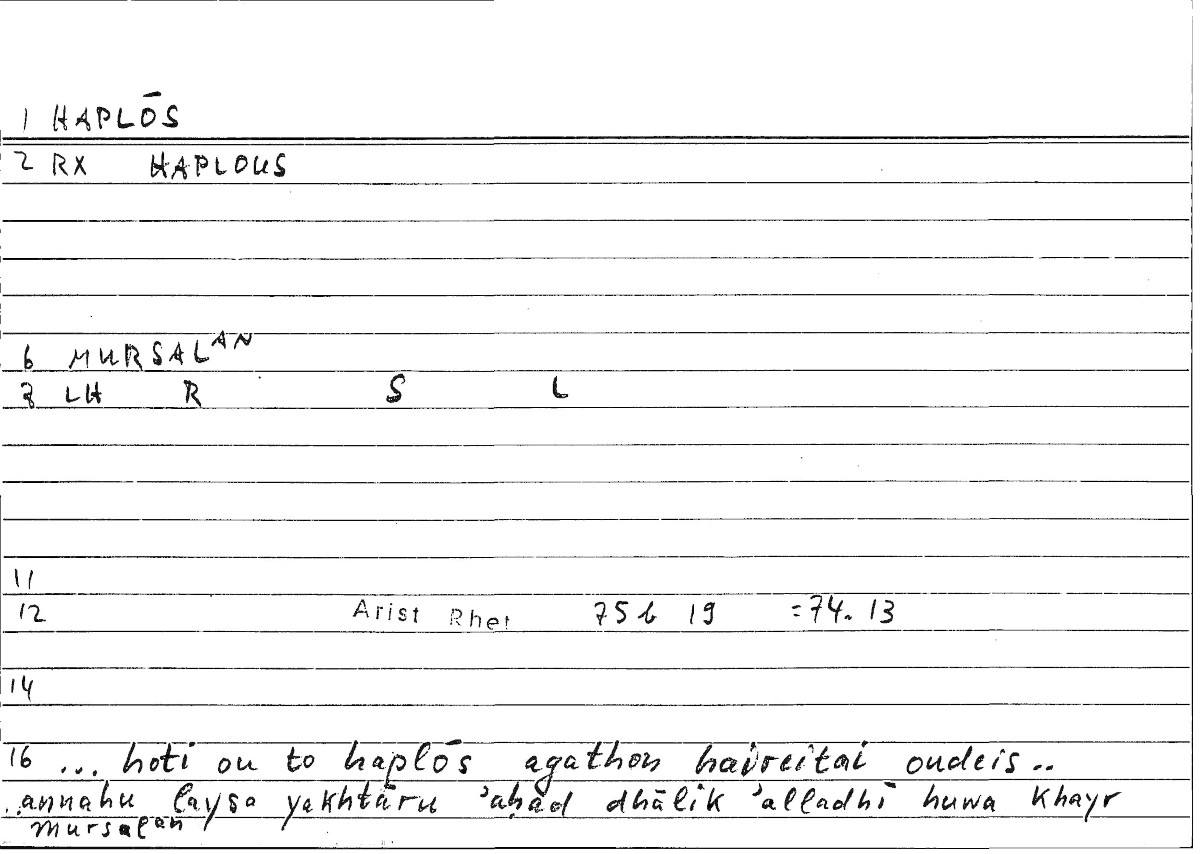 1 HAPLŌS
2 RX HAPLOUS
6 MURSALAN
7 LH R S L
11
12 Arist Rhet 75b 19 =74.13
14
16 ... hoti ou to haplōs agathon haireitai oudeis..
..annahu laysa yakhtāru 'aḥad dhālik 'alladhī huwa khayr
mursalan